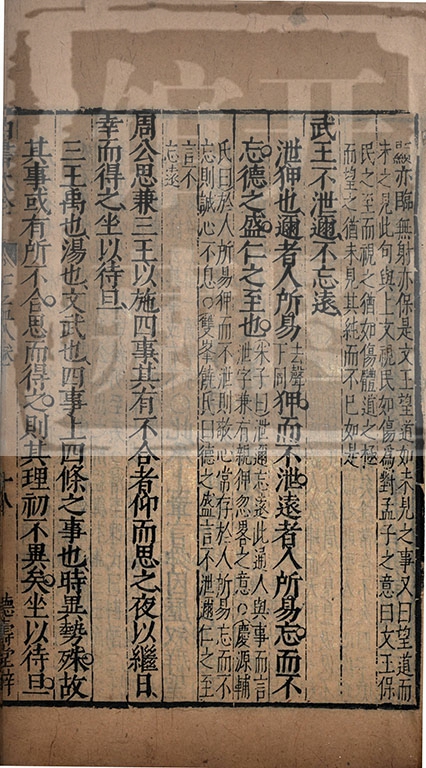 顯亦臨無射亦保是文王望道如未見之事又曰望道而
未之見此句與上文視民如傷爲對孟子之意曰文王保
民之至而視之猶如傷體道之極
而望之猶未見其純而不已如是
武王不泄邇不忘遠
泄狎也邇者人所易去聲下同狎而不泄遠者人所易忘而不
忘德之盛仁之至也
朱子曰泄邇忘遠此通人與事而言
泄字兼有親狎忽畧之意○慶源輔
氏曰於人所易狎而不泄則敬心常存於人所易忘而不
忘則誠心不息○雙峯饒氏曰德之盛言不泄邇仁之至
言不
忘遠
周公思兼三王以施四事其有不合者仰而思之夜以繼日
幸而得之坐以待旦
三王禹也湯也文武也四事上四條之事也時異勢殊故
其事或有所不合思而得之則其理初不異矣坐以待旦
十八